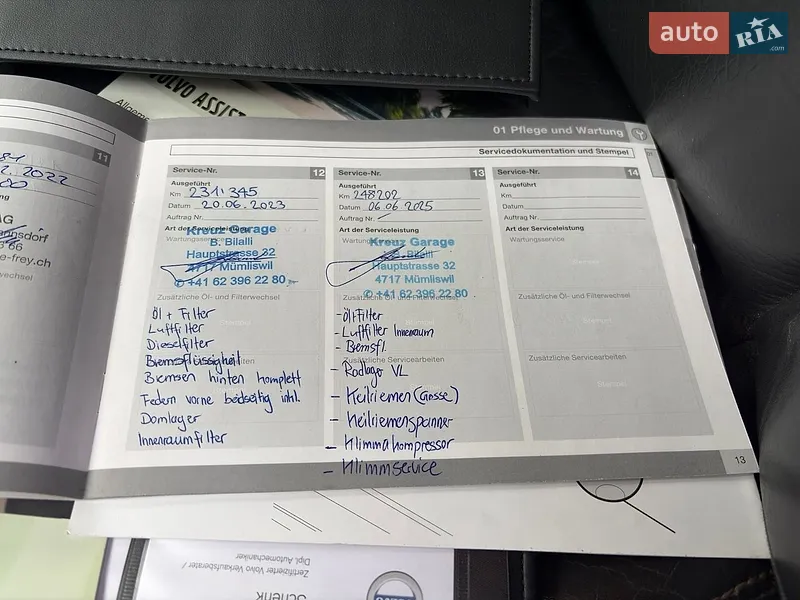 auto RIA.com
VOLVO ASSIST
01 Pflege und Wartung
Servicedokumentation und Stempel
11
2022
AG
e-frey.ch
Service-Nr. 12
Ausgeführt
Km 231'345
Datum 20.06.2023
Auftrag Nr.
Art der Serviceleistung
Wartungsservice
Kreuz Garage
B. Bilalli
Hauptstrasse 32
4717 Mümliswil
✆ +41 62 396 22 80
Zusätzliche Öl- und Filterwechsel
Öl + Filter
Luftfilter
Dieselfilter
Bremsflüssigkeit
Bremsen hinten komplett
Federn vorne beidseitig inkl.
Domlager
Innenraumfilter
Service-Nr. 13
Ausgeführt
Km 248202
Datum 06.06.2025
Auftrag Nr. /
Art der Serviceleistung
Kreuz Garage
B. Bilalli
Hauptstrasse 32
4717 Mümliswil
✆ +41 62 396 22 80
Zusätzliche Öl- und Filterwechsel
- Öl+Filter
- Luftfilter Innenraum
- Bremsfl.
Zusätzliche Servicearbeiten
- Radlager VL
- Keilriemen (Grosse)
- Keilriemenspanner
- Klimmakompressor
- Klimmservice
Service-Nr. 14
Ausgeführt
Km
Datum
Auftrag Nr.
Art der Serviceleistung
Wartungsservice
Zusätzliche Öl- und Filterwechsel
Zusätzliche Servicearbeiten
13
Schenk
Dipl. Automechaniker
Zertifizierter Volvo Verkaufsberater /